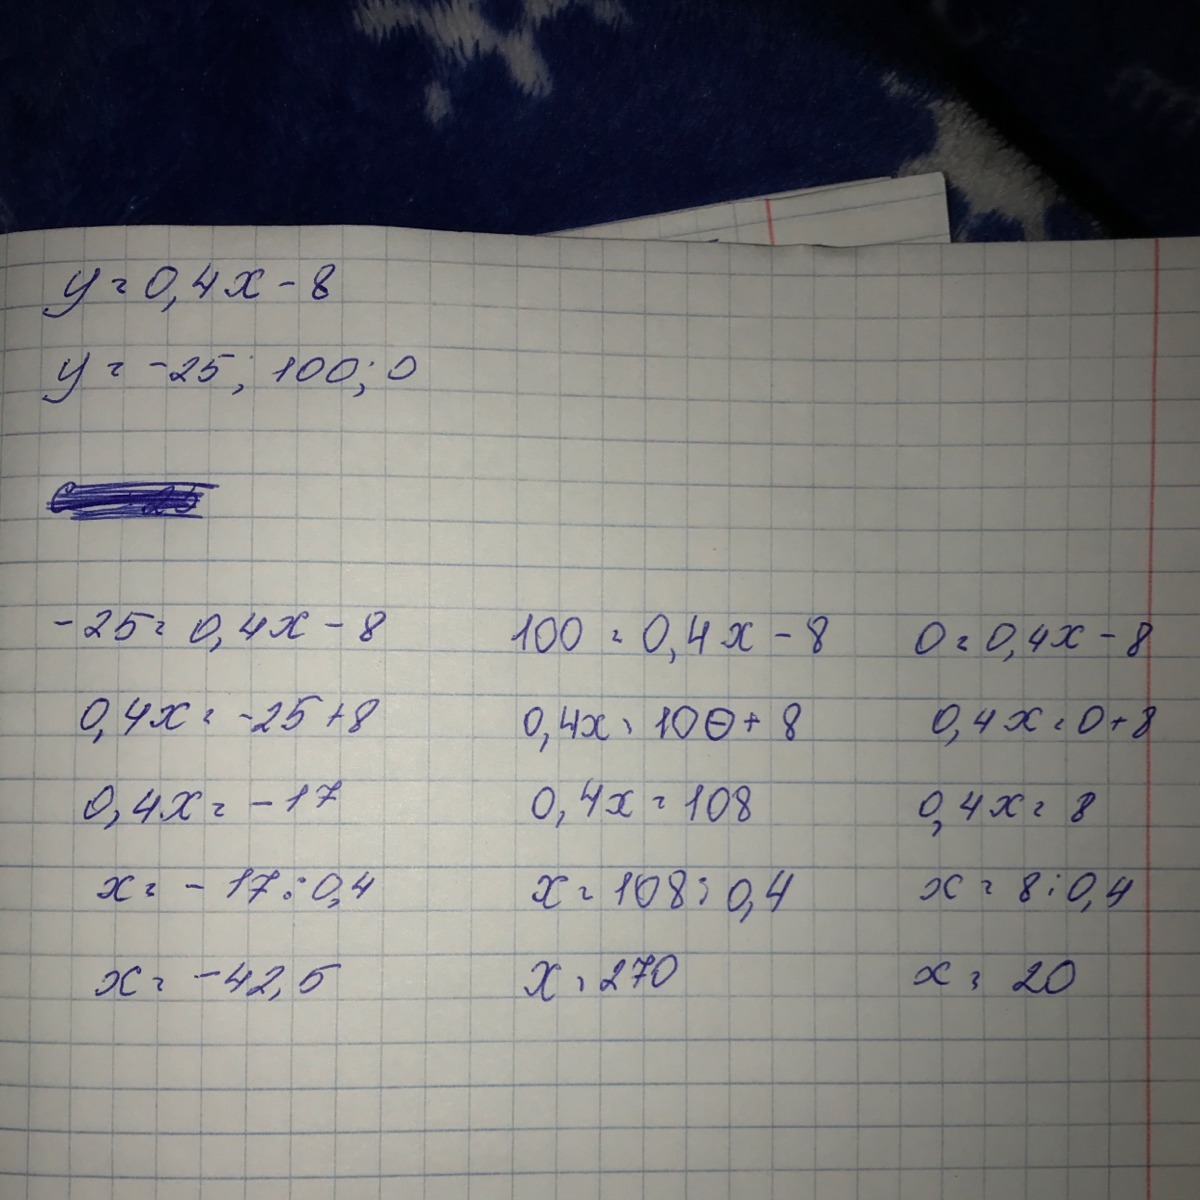 y = 0,4x - 8
y = -25; 100; 0
-25 = 0,4x - 8
0,4x = -25 + 8
0,4x = -17
x = -17 : 0,4
x = -42,5
100 = 0,4x - 8
0,4x = 100 + 8
0,4x = 108
x = 108 : 0,4
x = 270
0 = 0,4x - 8
0,4x = 0 + 8
0,4x = 8
x = 8 : 0,4
x = 20